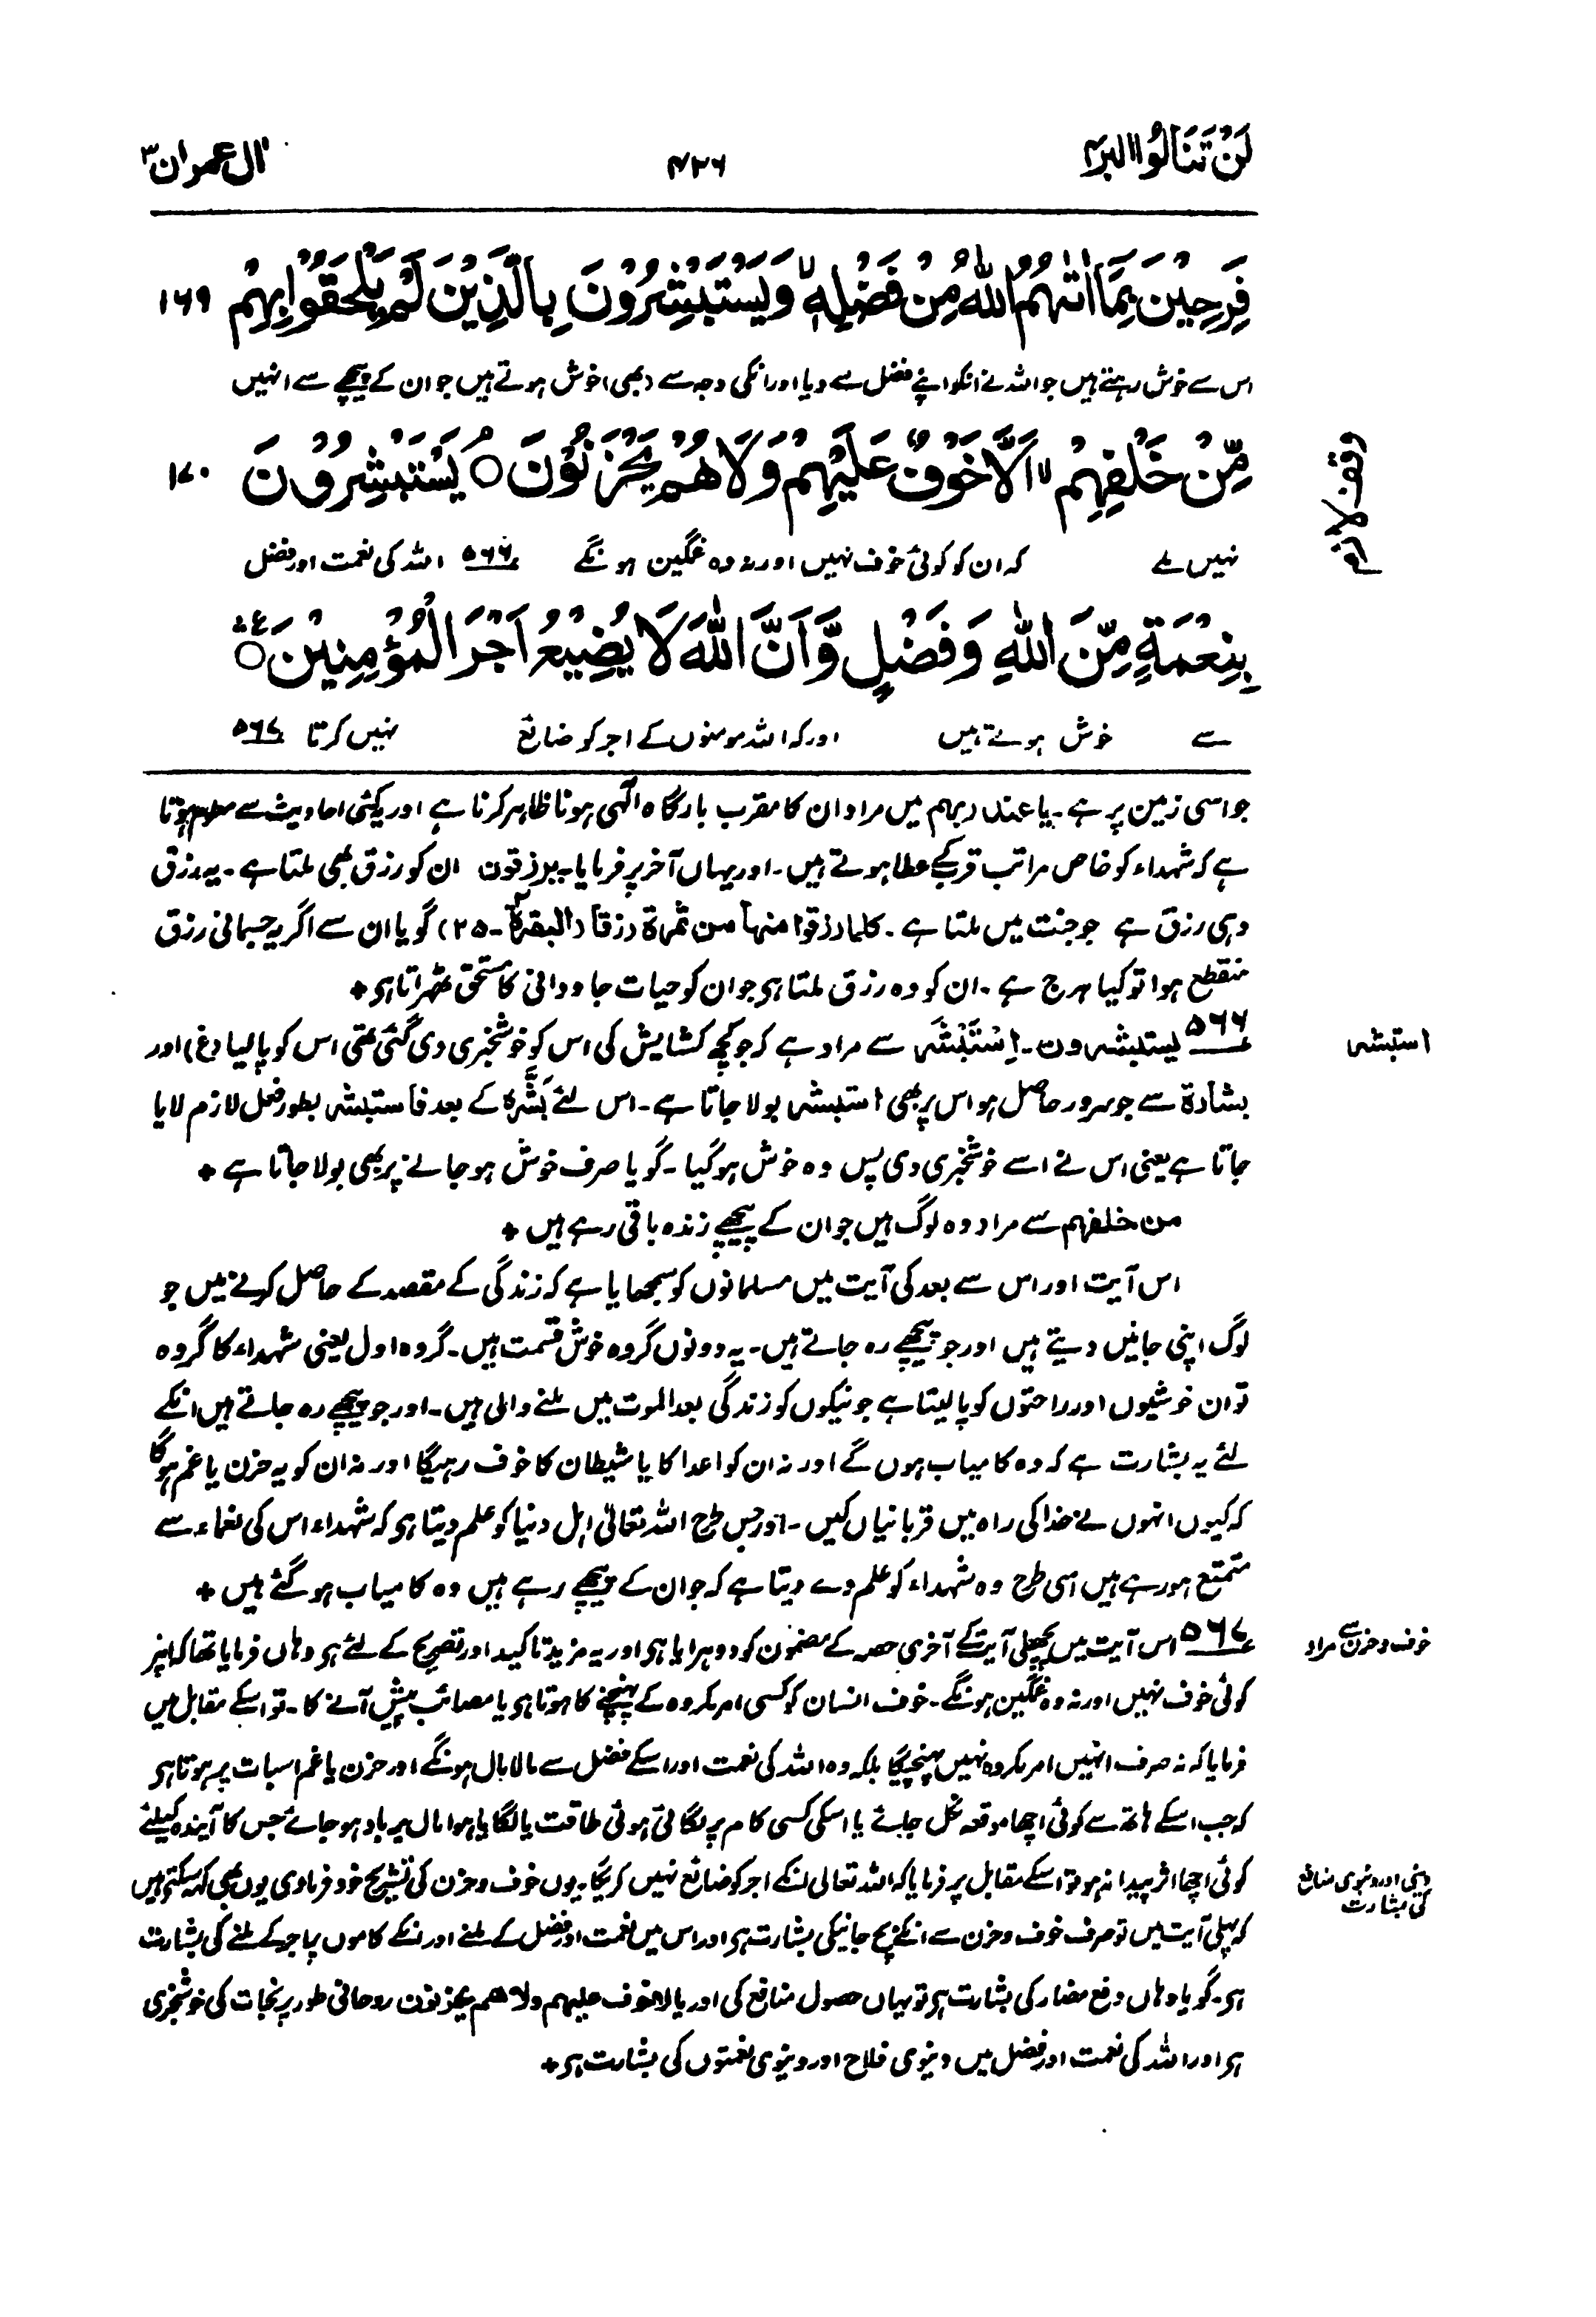 لَنْ تَنَالُوا الْبِرَّ ۴
۴۲۶
اٰل عمران ۳
فَرِحِيْنَ بِمَاۤ اٰتٰىهُمُ اللّٰهُ مِنْ فَضْلِهٖ ۙ وَيَسْتَبْشِرُوْنَ بِالَّذِيْنَ لَمْ يَلْحَقُوْا بِهِمْ
۱۶۹
اس سے خوش رہتے ہیں جو اللہ نے انکو اپنے فضل سے دیا اور انکی وجہ سے (بھی) خوش ہوتے ہیں جو ان کے پیچھے سے انہیں
مِّنْ خَلْفِهِمْ ۙ اَلَّا خَوْفٌ عَلَيْهِمْ وَلَا هُمْ يَحْزَنُوْنَ ○ م يَسْتَبْشِرُوْنَ
۱۷۰
وقف لازم
نہیں ملے کہ ان کو کوئی خوف نہیں اور نہ وہ غمگین ہونگے ۵۶۶ اللہ کی نعمت اور فضل
بِنِعْمَةٍ مِّنَ اللّٰهِ وَفَضْلٍ وَّاَنَّ اللّٰهَ لَا يُضِيْعُ اَجْرَ الْمُؤْمِنِيْنَ ○
سے خوش ہوتے ہیں اور کہ اللہ مومنوں کے اجر کو ضائع نہیں کرتا ۵۶۷
جو اسی زمین پر ہے۔ یا عند ربہم میں مراد ان کا مقرب بارگاہ الٰہی ہونا ظاہر کرنا ہے اور یہ کئی احادیث سے معلوم ہوتا
ہے کہ شہداء کو خاص مراتب قرب کے عطا ہوتے ہیں۔ اور یہاں آخر پر فرمایا۔ یرزقون ان کو رزق بھی ملتا ہے۔ یہ رزق
وہی رزق ہے جو جنت میں ملتا ہے۔ کلما رزقوا منہا من ثمرۃ رزقاً (البقرۃ ۲۔ ۲۵) گویا ان سے اگر یہ جسمانی رزق
منقطع ہوا تو کیا ہرج ہے۔ ان کو وہ رزق ملتا ہی جو ان کو حیات جاودانی کا مستحق ٹھہراتا ہی +
۵۶۶ یستبشرون۔ اِسْتَبْشَرَ سے مراد ہے کہ جو کچھ کشایش کی اس کو خوشخبری دی گئی تھی اس کو پا لیا (غ) اور
استبشر
بشارۃ سے جو سرور حاصل ہو اس پر بھی استبشر بولا جاتا ہے۔ اس لئے بَشَّرَہٗ کے بعد فاستبشر بطور فعل لازم لایا
جاتا ہے یعنی اس نے اسے خوشخبری دی پس وہ خوش ہو گیا۔ گویا صرف خوش ہو جانے پر بھی بولا جاتا ہے +
من خلفہم سے مراد وہ لوگ ہیں جو ان کے پیچھے زندہ باقی رہے ہیں +
اس آیت اور اس سے بعد کی آیت میں مسلمانوں کو سمجھایا ہے کہ زندگی کے مقصد کے حاصل کرنے میں جو
لوگ اپنی جانیں دیتے ہیں اور جو پیچھے رہ جاتے ہیں۔ یہ دونوں گروہ خوش قسمت ہیں۔ گروہ اول یعنی شہداء کا گروہ
تو ان خوشیوں اور راحتوں کو پا لیتا ہے جو نیکوں کو زندگی بعد الموت میں ملنے والی ہیں۔ اور جو پیچھے رہ جاتے ہیں انکے
لئے یہ بشارت ہے کہ وہ کامیاب ہوں گے اور نہ ان کو اعدا کا یا شیطان کا خوف رہیگا اور نہ ان کو یہ حزن یا غم ہوگا
کہ کیوں انہوں نے خدا کی راہ میں قربانیاں کیں۔ اور جس طرح اللہ تعالیٰ اہل دنیا کو علم دیتا ہی کہ شہداء اس کی نعماء سے
متمتع ہو رہے ہیں اسی طرح وہ شہداء کو علم دے دیتا ہے کہ جو ان کے پیچھے رہے ہیں وہ کامیاب ہو گئے ہیں +
۵۶۷ اس آیت میں پچھلی آیت کے آخری حصہ کے مضمون کو دوہرایا ہی اور یہ مزید تاکید اور تصریح کے لئے ہی وہاں فرمایا تھا کہ انپر
خوف و حزن سے مراد
کوئی خوف نہیں اور نہ وہ غمگین ہونگے۔ خوف انسان کو کسی امر مکروہ کے پہنچنے کا ہوتا ہی یا مصائب پیش آنے کا۔ تو اسکے مقابل میں
فرمایا کہ نہ صرف انہیں امر مکروہ نہیں پہنچیگا بلکہ وہ اللہ کی نعمت اور اسکے فضل سے مالا مال ہونگے اور حزن یا غم اسبات پر ہوتا ہی
کہ جب اسکے ہاتھ سے کوئی اچھا موقعہ نکل جائے یا اسکی کسی کام پر لگائی ہوئی طاقت یا لگایا ہوا مال برباد ہو جائے جس کا آیندہ کیلئے
کوئی اچھا اثر پیدا نہ ہو تو اسکے مقابل پر فرمایا کہ اللہ تعالیٰ انکے اجر کو ضائع نہیں کریگا۔ یوں خوف و حزن کی تشریح خود فرما دی یوں بھی کہہ سکتے ہیں
دینی اور دنیوی منافع
کی بشارت
کہ پہلی آیت میں تو صرف خوف و حزن سے انکے بچ جانیکی بشارت ہی اور اس میں نعمت اور فضل کے ملنے اور انکے کاموں پر اجر کے ملنے کی بشارت
ہی۔ گویا وہاں دفع مضار کی بشارت ہی تو یہاں حصول منافع کی اور یا لا خوف علیہم ولا ھم یحزنون روحانی طور پر نجات کی خوشخبری
ہی اور اللہ کی نعمت اور فضل میں دنیوی فلاح اور دنیوی نعمتوں کی بشارت ہی +